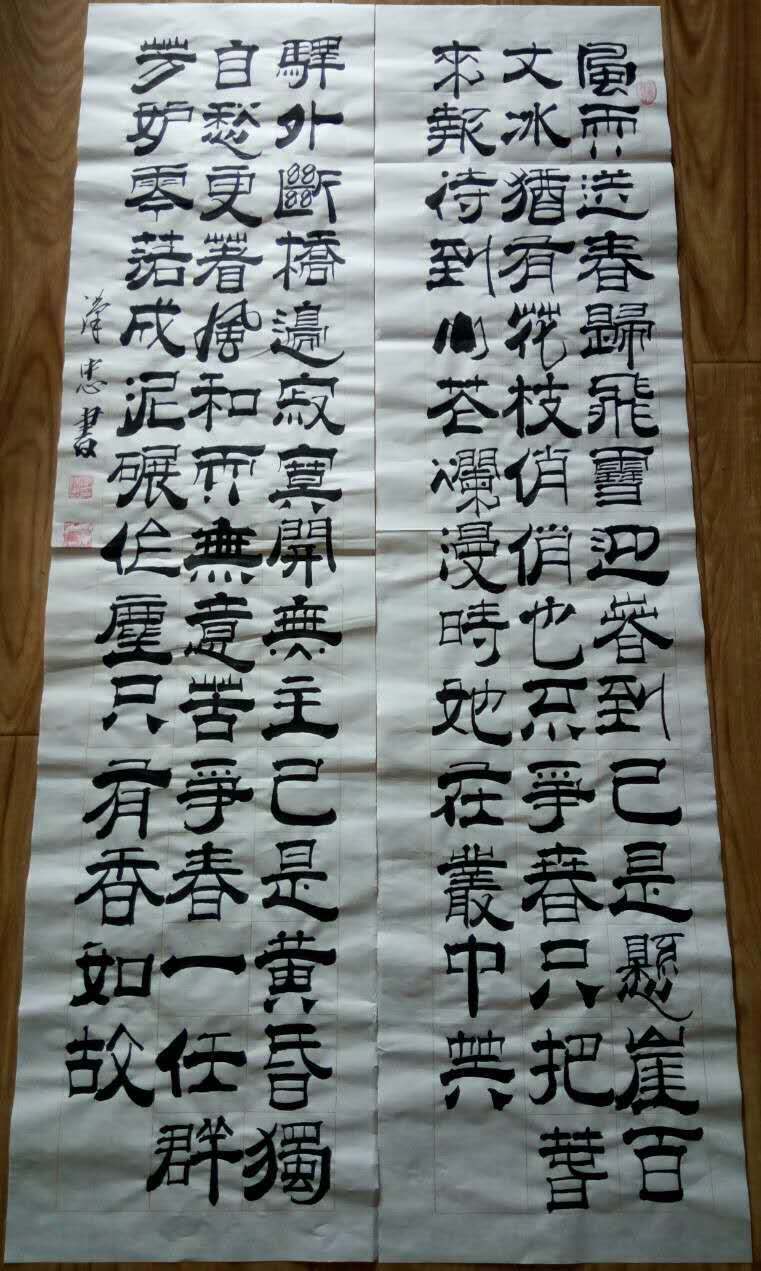 風雨送春歸飛雪迎春到已是懸崖百
丈冰猶有花枝俏俏也不爭春只把春
來報待到山花爛漫時她在叢中笑
驛外斷橋邊寂寞開無主已是黃昏獨
自愁更著風和雨無意苦爭春一任群
芳妒零落成泥碾作塵只有香如故
忠書